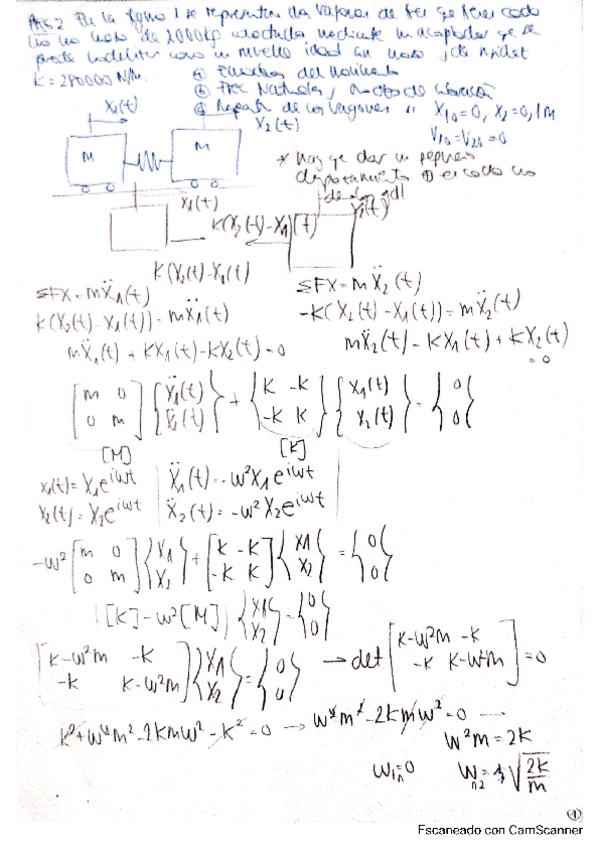 En la figura 1 se representan dos vagones de tren que tienen cada
uno una masa de 2000 kg
puede modelizar como un muelle ideal sin masa y de rigidez
K = 290000 N/m.
① Ecuación del movimiento
② Frec Naturales y modos de vibración
③ Respuesta de los vagones si X10 = 0, X2 = 0,1 m
V10 = V20 = 0
X1(t)
X2(t)
M
M
* Hay que dar un pequeño
desplazamiento ⊕ en cada uno
de los gdl
X1(t)
X2(t)
K(X2(t)-X1)(t)
K(X2(t)-X1(t)
ΣFX = mẌ1(t)
ΣFX = mẌ2(t)
K(X2(t)-X1(t)) = mẌ1(t)
-K(X2(t)-X1(t)) = mẌ2(t)
mẌ1(t) + KX1(t)-KX2(t) = 0
mẌ2(t) - KX1(t) + KX2(t) = 0
[m 0 0 m] {Ẍ1(t) Ẍ2(t)} + {K -K -K K} {X1(t) X2(t)} = {0 0}
[M]
[K]
X1(t) = X1e^iωt
Ẍ1(t) = -ω²X1e^iωt
X2(t) = X2e^iωt
Ẍ2(t) = -ω²X2e^iωt
-ω² [m 0 0 m] {X1 X2} + [K -K -K K] {X1 X2} = {0 0}
[K] - ω²[M] {X1 X2} = {0 0}
[K-ω²m -K -K K-ω²m] {X1 X2} = {0 0} → det [K-ω²m -K -K K-ω²m] = 0
K² + ω⁴m² - 2Kmω² - K² = 0 → ω⁴m² - 2Kmω² = 0
ω²m = 2K
ω1n = 0
ωn2 = √2K/m
①
Escaneado con CamScanner